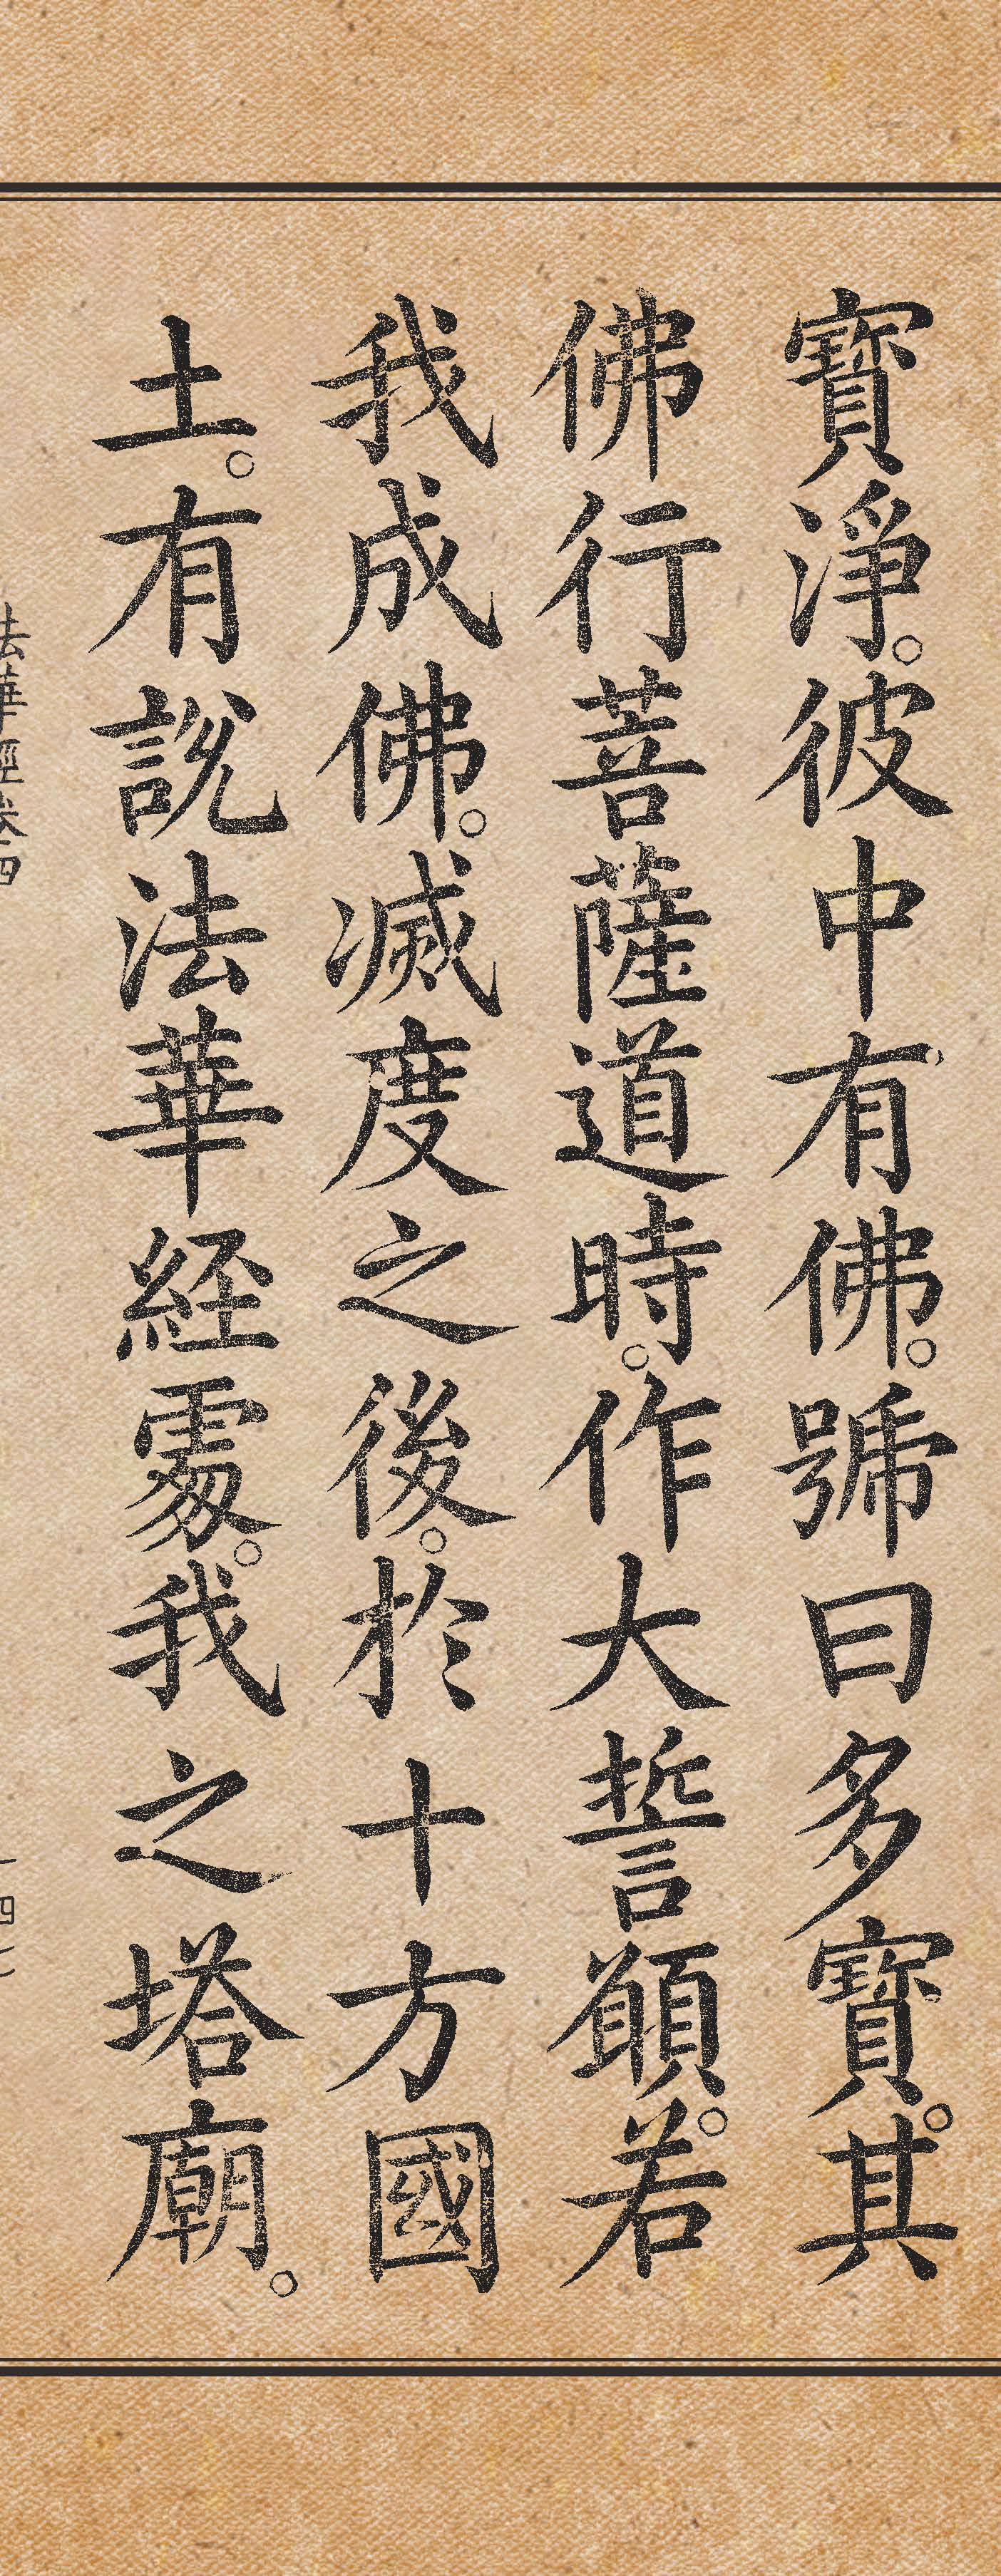 寶淨。彼中有佛。號曰多寶。其
佛行菩薩道時。作大誓願。若
我成佛。滅度之後。於十方國
土。有說法華経處。我之塔廟。
法華經卷四